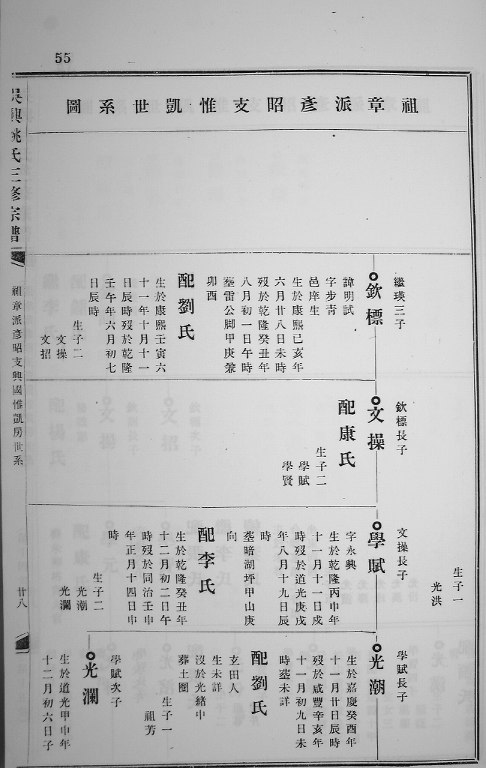 55
祖章派彥昭支惟凱世系圖
吳興姚氏三修宗譜
祖章派彥昭支興國惟凱房世系
廿八
繼瑛三子
欽標
諱明試
字步青
邑庠生
生於康熙己亥年
六月廿八日未時
歿於乾隆癸丑年
八月初一日午時
塟雷公脚甲庚兼
卯酉
配劉氏
生於康熙壬寅六
十一年十月十一
日辰時歿於乾隆
壬午年六月初七
日辰時
生子二
文操
文招
欽標長子
文操
配康氏
生子二
學賦
學賢
文操長子
學賦
字永興
生於乾隆丙申年
十一月十一日戌
時歿於道光庚戌
年八月十九日辰
時
塟暗湖坪甲山庚
向
配李氏
生於乾隆癸丑年
十二月初二日午
時歿於同治壬申
年正月十四日申
時
生子二
光潮
光瀾
生子一
光洪
學賦長子
光潮
生於嘉慶癸酉年
十一月廿日辰時
歿於咸豐辛亥年
十一月初九日未
時塟未詳
配劉氏
玄田人
生未詳
沒於光緒中
葬土圈
生子一
祖芳
學賦次子
光瀾
生於道光甲申年
十二月初六日子